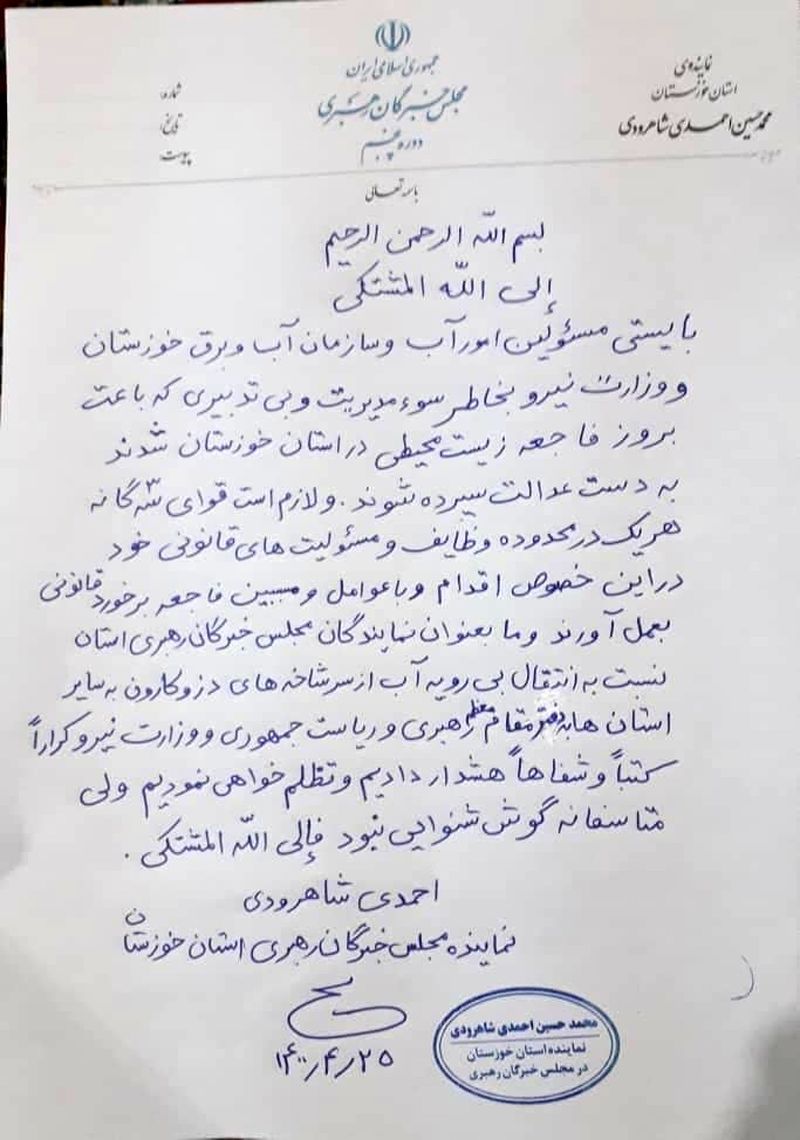 جمهوری اسلامی ایران
مجلس خبرگان رهبری
دوره پنجم
نمایندهٔ
استان خوزستان
محمدحسین احمدی شاهرودی
شماره:
تاریخ:
پیوست:
باسمه تعالی
بسم الله الرحمن الرحیم
إلی الله المشتکی
بایستی مسئولین امور آب و سازمان آب و برق خوزستان
و وزارت نیرو بخاطر سوء مدیریت و بی تدبیری که باعث
بروز فاجعه زیست محیطی در استان خوزستان شدند
به دست عدالت سپرده شوند. و لازم است قوای سه گانه
هریک در محدوده وظایف و مسئولیت های قانونی خود
در این خصوص اقدام و با عوامل و مسببین فاجعه برخورد قانونی
بعمل آورند و ما بعنوان نمایندگان مجلس خبرگان رهبری استان
نسبت به انتقال بی رویه آب از سرشاخه های دز و کارون به سایر
استان ها به دفتر مقام معظم رهبری و ریاست جمهوری و وزارت نیرو کراراً
کتباً و شفاهاً هشدار دادیم و تظلم خواهی نمودیم ولی
متاسفانه گوش شنوایی نبود فإلی الله المشتکی.
احمدی شاهرودی
نماینده مجلس خبرگان رهبری استان خوزستان
۱۴۰۰/۴/۲۵
محمد حسین احمدی شاهرودی
نماینده استان خوزستان
در مجلس خبرگان رهبری